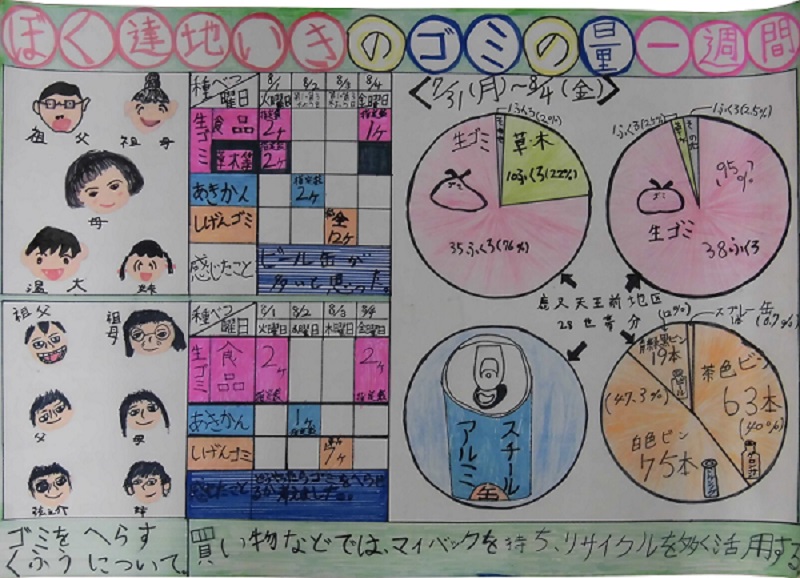 ぼく達地いきのゴミの量一週間
祖父 祖母
母
妹
種べつ 曜日 8/1 8/2 8/3 8/4
火曜日 金曜日
生ゴミ 食品 指定袋 2ヶ 1ヶ
草木等 指定袋 2ヶ
あきかん 指定袋 2ヶ
しげんゴミ 12ヶ
感じたこと ビール缶が
多いと思った。
祖父 祖母
父 母
妹
種べつ 曜日 8/1 8/2 8/3 8/4
火曜日 水曜日 木曜日 金曜日
生ゴミ 食品 2ヶ 指定袋 2ヶ 指定袋
あきかん 1ヶ 指定袋
しげんゴミ 7ヶ
感じたこと どうやったらゴミをへらせ
るか考えました。
〈7/31(月)〜8/4(金)〉
1ふくろ(2%)
生ゴミ
草木
10ふくろ(22%)
35ふくろ(76%)
1ふくろ(2.5%)
1ふくろ(2.5%)
95%
生ゴミ
38ふくろ
鹿又天王前地区
28世帯分
スチール
アルミ
缶
(12%)
19本
スプレー缶
(0.7%)
茶色ビン
63本
(40%)
(47.3%)
白色ビン
75本
ゴミをへらす
くふうについて。
買い物などでは、マイバックを持ち、リサイクルを多く活用する。